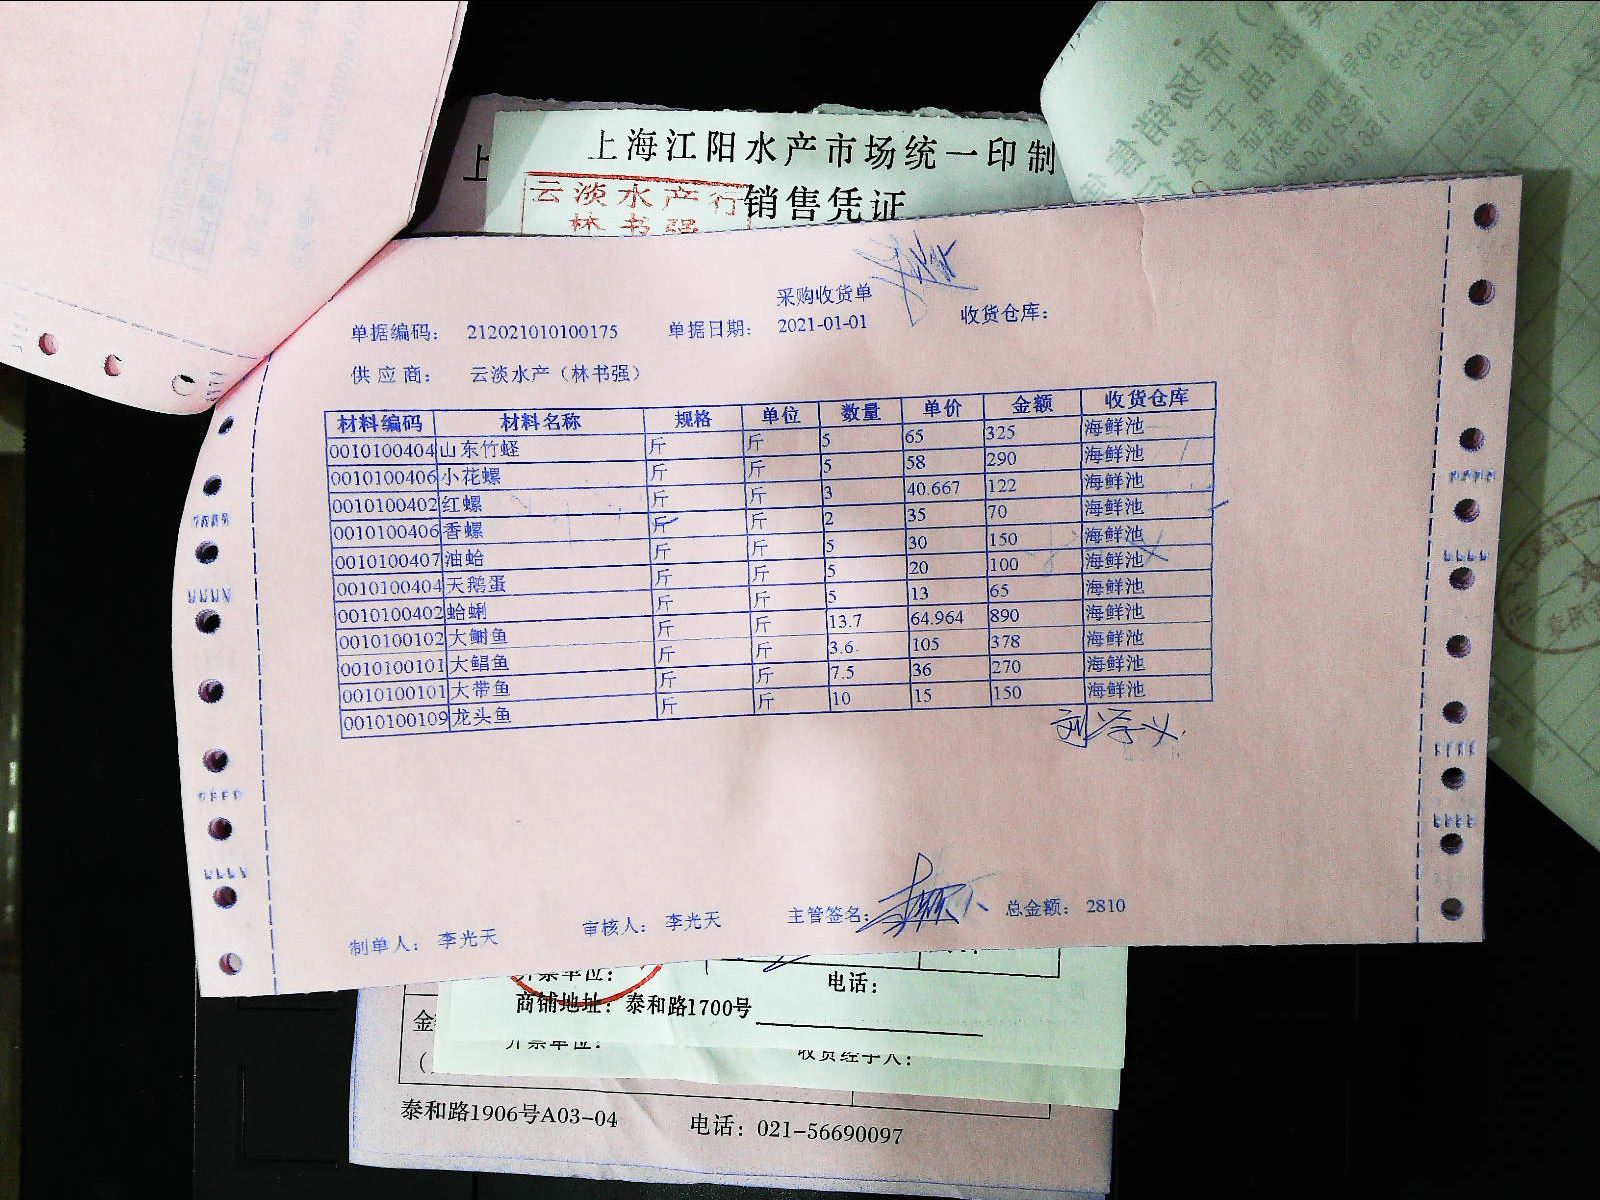 上海江阳水产市场统一印制
云淡水产行 销售凭证
林书强
采购收货单
单据编码: 212021010100175 单据日期: 2021-01-01 收货仓库:
供应商: 云淡水产（林书强）
材料编码 材料名称 规格 单位 数量 单价 金额 收货仓库
0010100404 山东竹蛏 斤 斤 5 65 325 海鲜池
0010100406 小花螺 斤 斤 5 58 290 海鲜池
0010100402 红螺 斤 斤 3 40.667 122 海鲜池
0010100406 香螺 斤 斤 2 35 70 海鲜池
0010100407 油蛤 斤 斤 5 30 150 海鲜池
0010100404 天鹅蛋 斤 斤 5 20 100 海鲜池
0010100402 蛤蜊 斤 斤 5 13 65 海鲜池
0010100102 大鲥鱼 斤 斤 13.7 64.964 890 海鲜池
0010100101 大鲳鱼 斤 斤 3.6 105 378 海鲜池
0010100101 大带鱼 斤 斤 7.5 36 270 海鲜池
0010100109 龙头鱼 斤 斤 10 15 150 海鲜池
刘学义
制单人: 李光天 审核人: 李光天 主管签名: 总金额: 2810
开票单位: 电话:
商铺地址: 泰和路1700号
开票单位: 收货经手人:
金
泰和路1906号A03-04 电话: 021-56690097